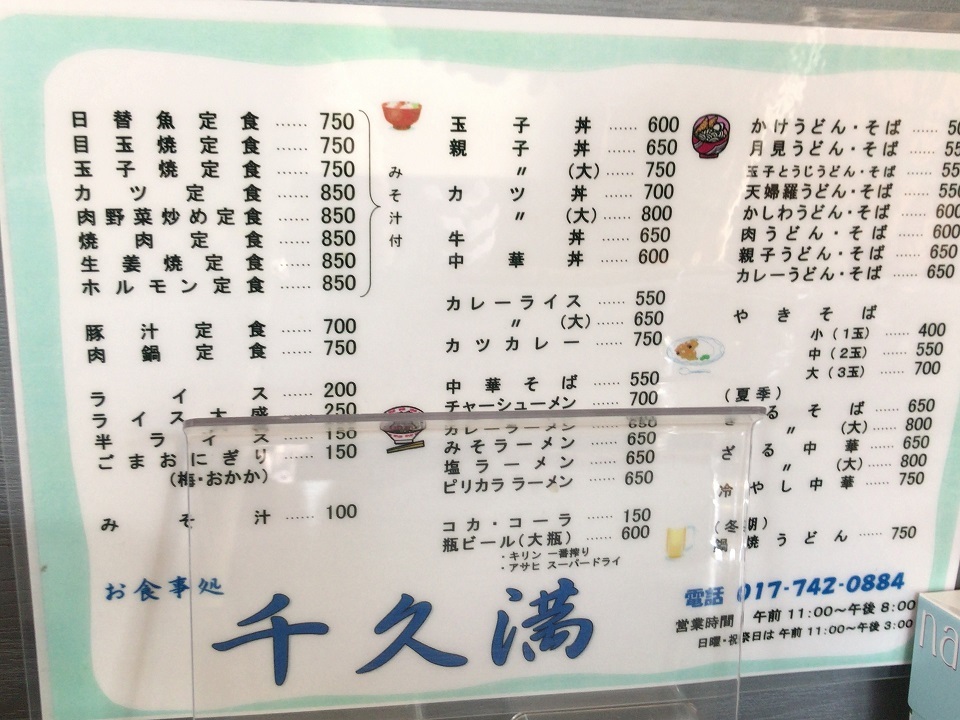 日替魚定食 …… 750
目玉焼定食 …… 750
玉子焼定食 …… 750
カツ定食 …… 850
肉野菜炒め定食 …… 850
焼肉定食 …… 850
生姜焼定食 …… 850
ホルモン定食 …… 850
みそ汁付
豚汁定食 …… 700
肉鍋定食 …… 750
ライス …… 200
ライス大盛 …… 250
半ライス …… 150
ごまおにぎり …… 150
(梅・おかか)
みそ汁 …… 100
玉子丼 …… 600
親子丼 …… 650
〃 (大) …… 750
カツ丼 …… 700
〃 (大) …… 800
牛丼 …… 650
中華丼 …… 600
カレーライス …… 550
〃 (大) …… 650
カツカレー …… 750
中華そば …… 550
チャーシューメン …… 700
カレーラーメン …… 650
みそラーメン …… 650
塩ラーメン …… 650
ピリカララーメン …… 650
コカ・コーラ …… 150
瓶ビール(大瓶) …… 600
・キリン 一番搾り
・アサヒ スーパードライ
かけうどん・そば ……
月見うどん・そば ……
玉子とうじうどん・そば ……
天婦羅うどん・そば …… 550
かしわうどん・そば …… 600
肉うどん・そば …… 600
親子うどん・そば …… 650
カレーうどん・そば …… 650
やきそば
小(1玉) …… 400
中(2玉) …… 550
大(3玉) …… 700
(夏季)
ざるそば …… 650
〃 (大) …… 800
ざる中華 …… 650
〃 (大) …… 800
冷やし中華 …… 750
(冬期)
鍋焼うどん …… 750
お食事処
千久満
電話 017-742-0884
営業時間 午前 11:00～午後 8:00
日曜・祝祭日は 午前 11:00～午後 3:00
na